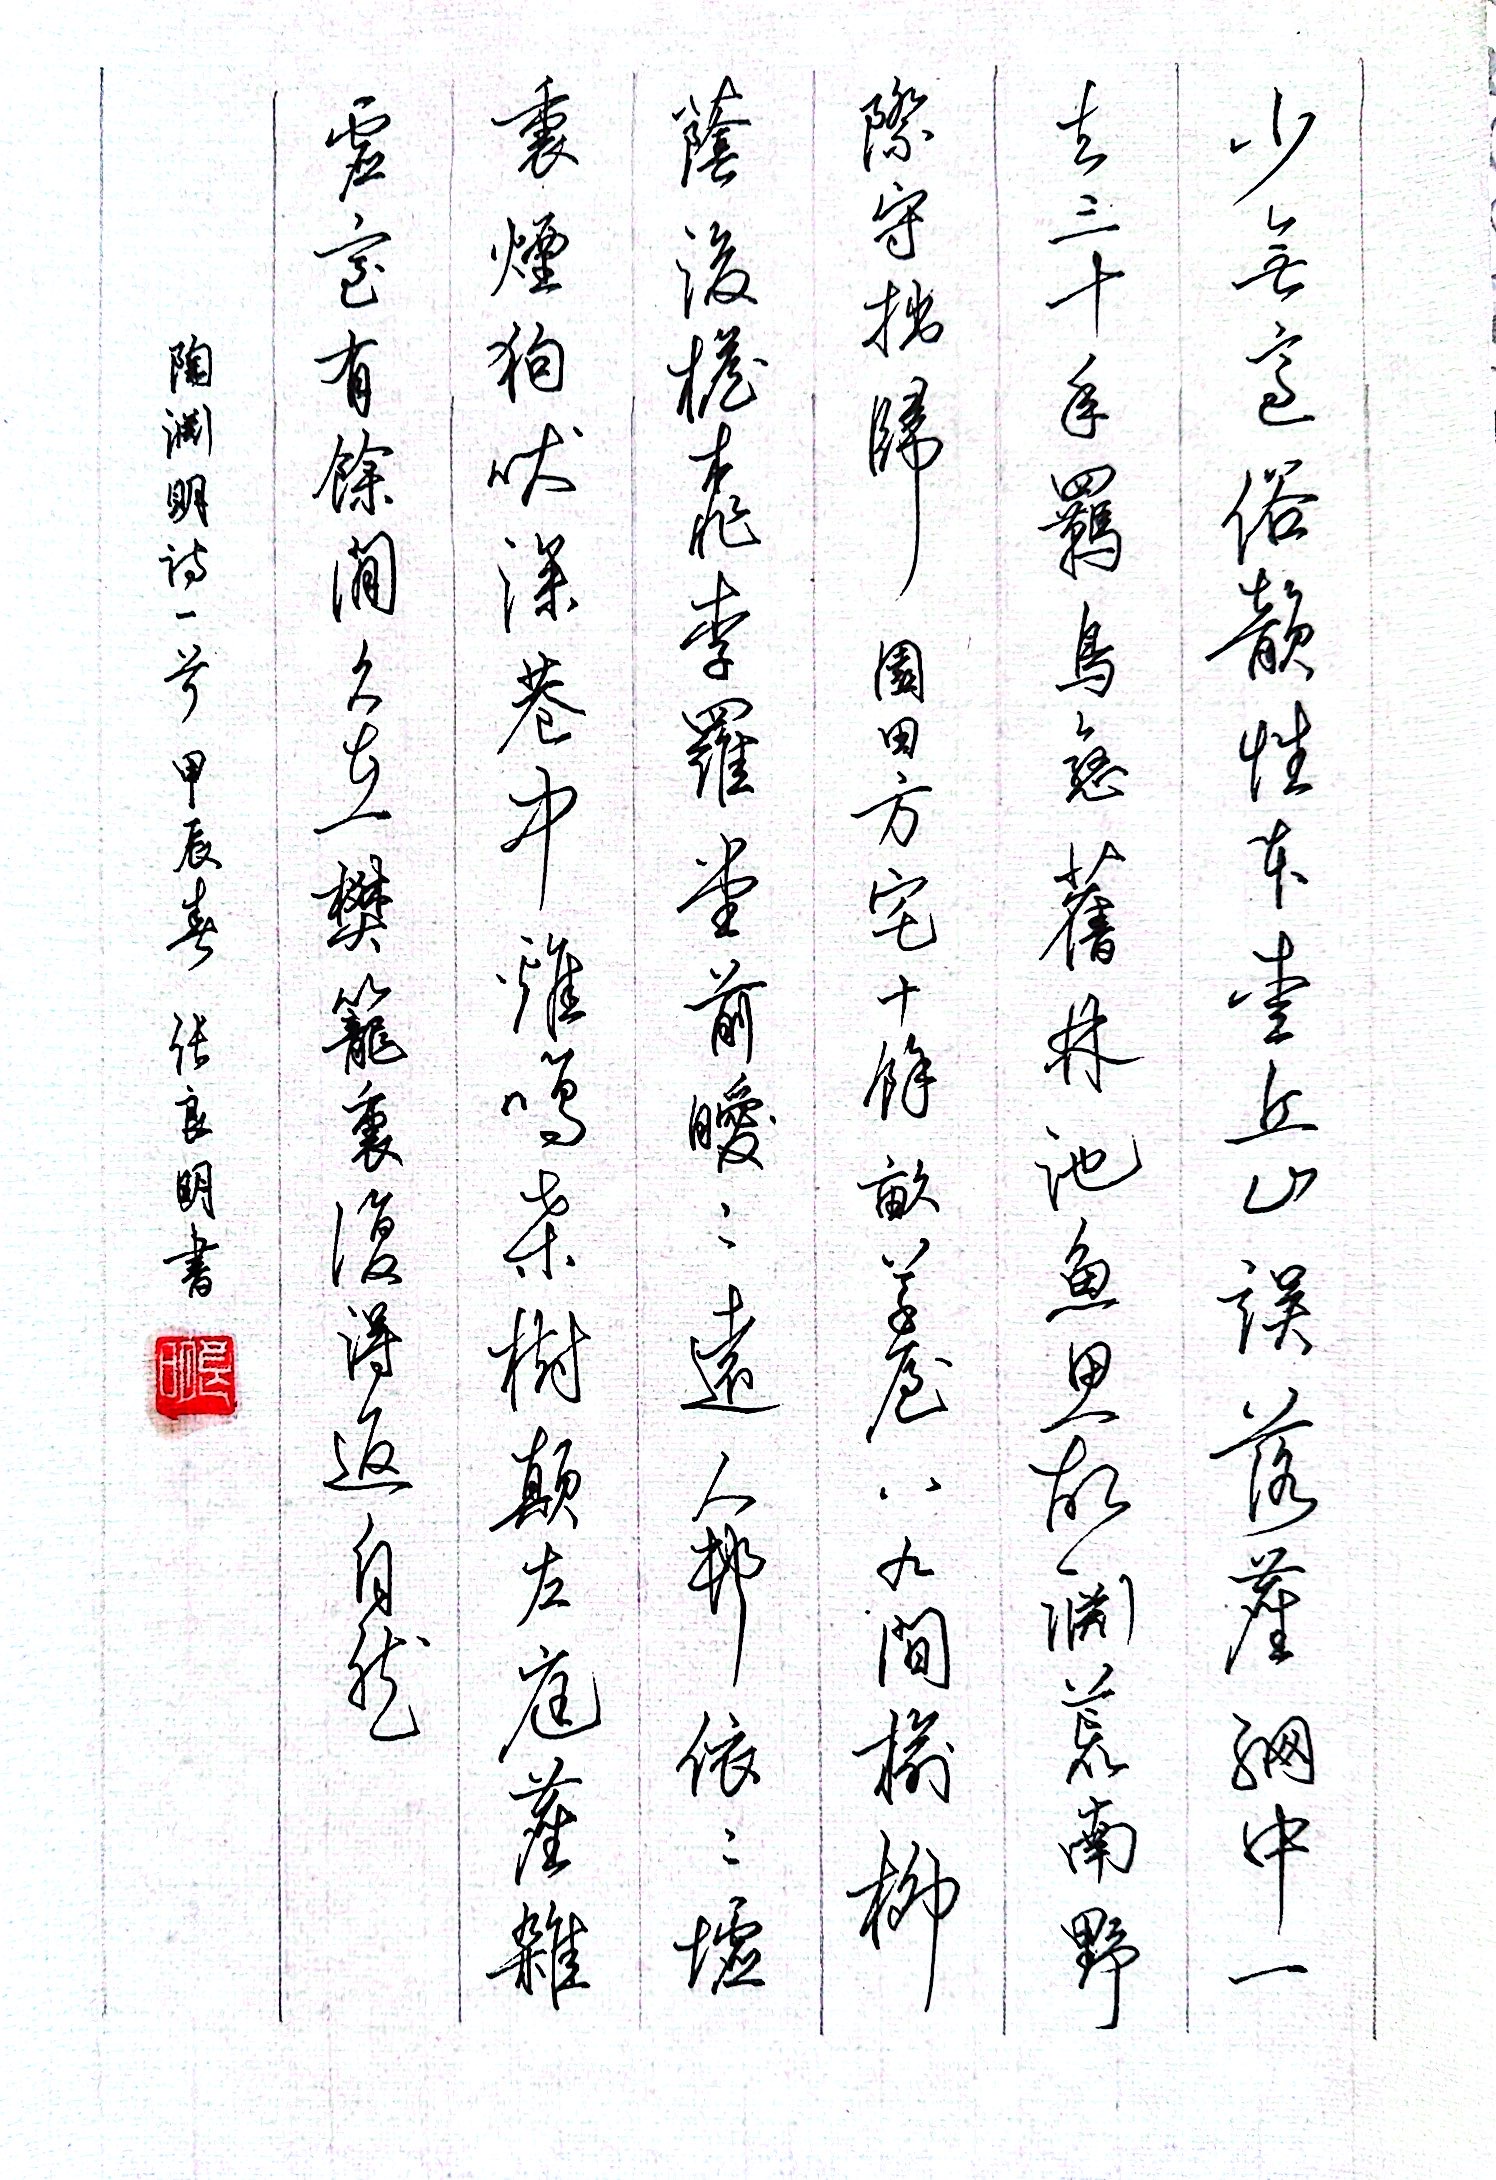 少無適俗韻性本愛丘山誤落塵網中一
去三十年羈鳥戀舊林池魚思故淵荒南野
際守拙歸園田方宅十餘畝草屋八九間榆柳
蔭後檐桃李羅堂前曖々遠人邨依々墟
裏煙狗吠深巷中雞鳴桑樹顛左庭塵雜
虛室有餘閒久在樊籠裏復得返自然
陶淵明詩一首 甲辰春 张良明書
良明